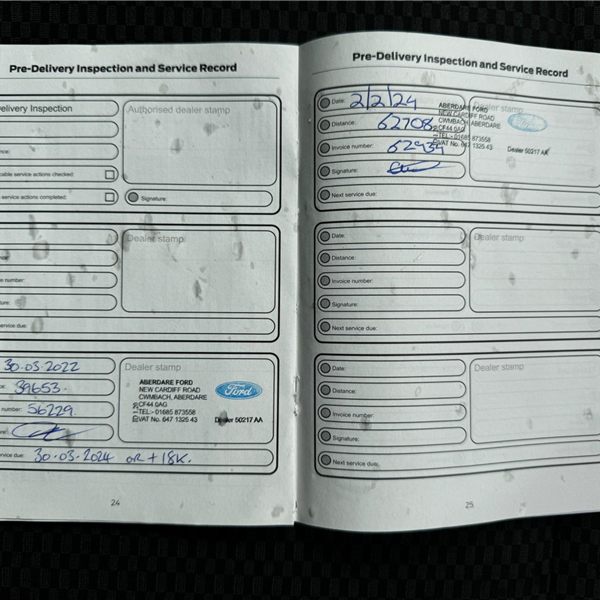 Pre-Delivery Inspection and Service Record
elivery Inspection
Authorised dealer stamp
cable service actions checked:
service actions completed:
Signature:
Dealer stamp
number:
ture:
ervice due:
30·03·2022
39653·
number: 56229
vice due: 30·03·2024 OR +18K.
Dealer stamp
ABERDARE FORD
NEW CARDIFF ROAD
CWMBACH, ABERDARE
CF44 0AG
TEL:- 01685 873558
VAT No. 647 1325 43
Ford
Dealer 50217 AA
24
Pre-Delivery Inspection and Service Record
Date: 2/2/24
Distance: 62708
Invoice number: 62934
Signature:
Next service due:
Dealer stamp
ABERDARE FORD
NEW CARDIFF ROAD
CWMBACH, ABERDARE
CF44 0AG
TEL:- 01685 873558
VAT No. 647 1325 43
Ford
Dealer 50217 AA
Date:
Distance:
Invoice number:
Signature:
Next service due:
Dealer stamp
Date:
Distance:
Invoice number:
Signature:
Next service due:
Dealer stamp
25